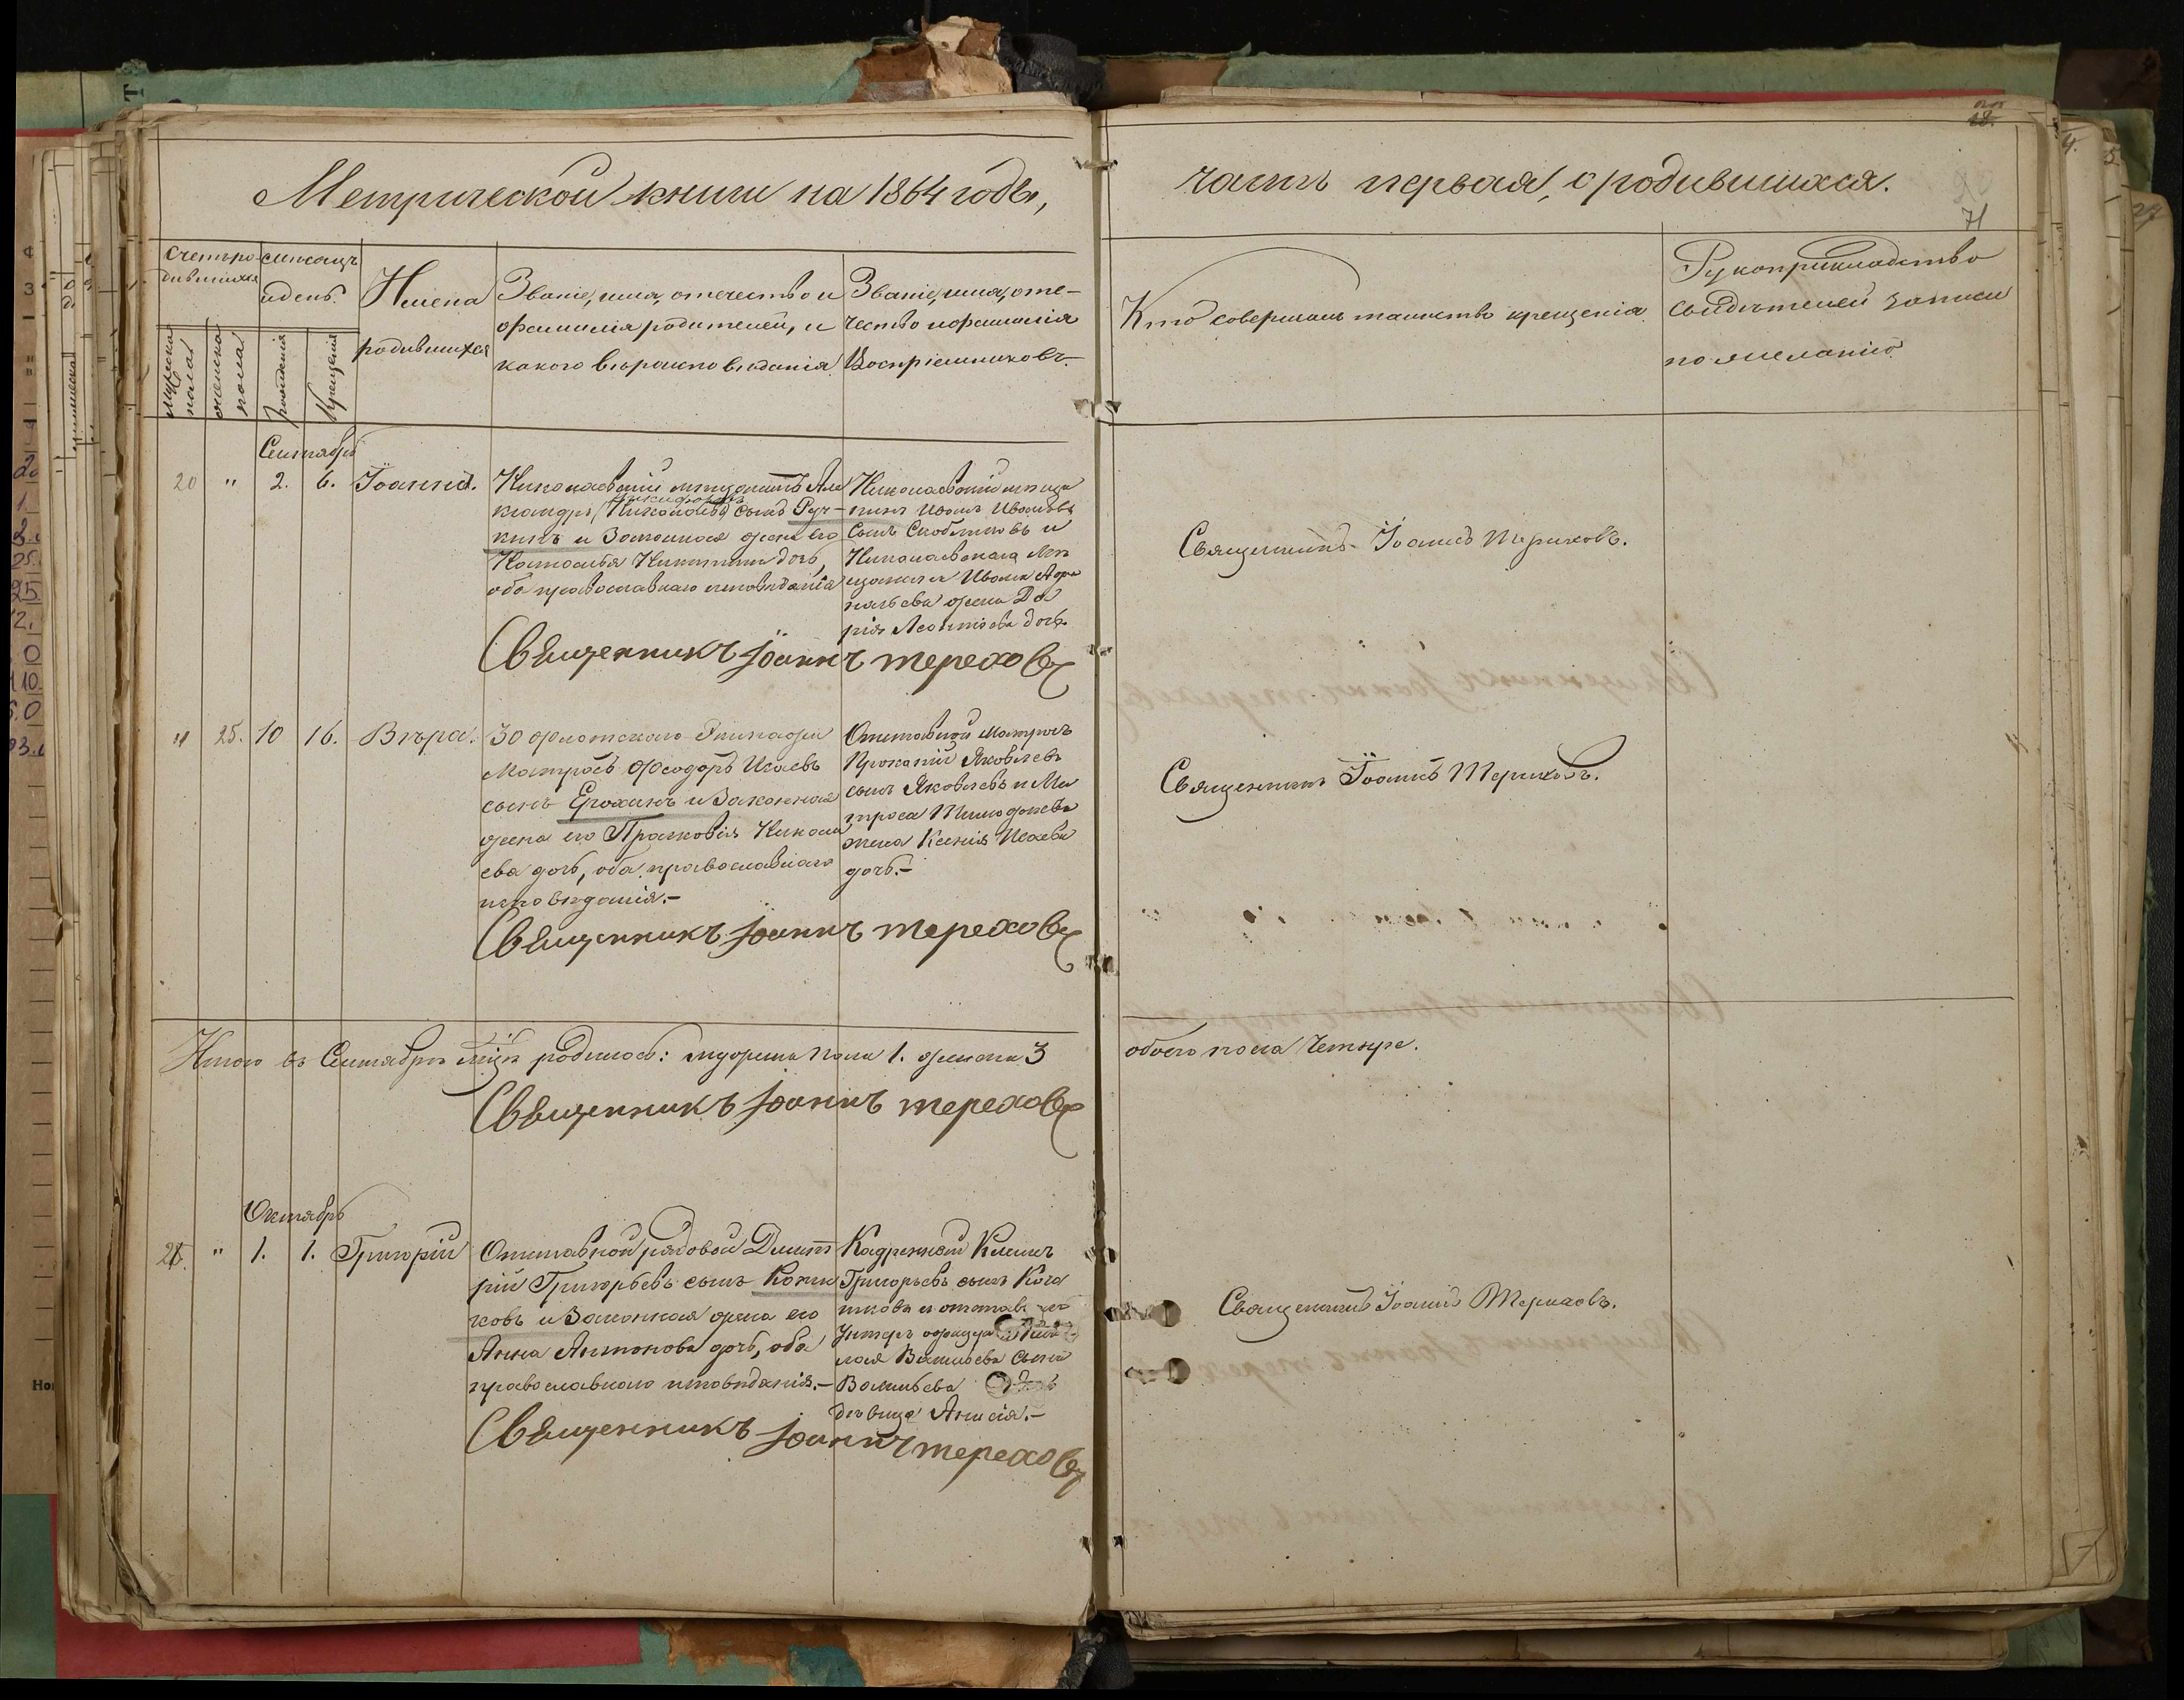 Метрической книги на 1864 годъ,
часть первая, о родившихся.
71
Счетъ ро-
дившихся
мужеска
пола
женска
пола
мѣсяцъ
и день.
рожденія
крещенія
Имена
родившихся
Званіе, имя, отечество и
фамилія родителей, и
какого вѣроисповѣданія.
Званіе, имя, оте-
чество и фамилія
Воспріемниковъ.
Кто совершалъ таинство крещенія
Рукоприкладство
свидѣтелей записи
по желанію
Сентябрь
20 " 2. 6. Іоаннъ.
Николаевскій мѣщанинъ Але
ксандръ сынъ Руч-
кинъ и Законная жена его
Никитина дочь,
оба православнаго исповѣданія
Николаевскій мѣща
нинъ Иванъ Ивановъ
сынъ Скобликовъ и
Николаевскаго мѣ
щанина Ивана Афа
насьева жена Да
рія Леонтіева дочь
Священникъ Іоаннъ Тереховъ.
Священникъ Іоаннъ Тереховъ
" 25. 10 16. Вѣра.
30 флотскаго Экипажа
Матросъ Феодоръ Исаевъ
сынъ Ерохинъ и Законная
жена его Прасковія Никола
ева дочь, оба православнаго
исповѣданія.-
Отставной Матросъ
Прокопій Яковлевъ
сынъ Яковлевъ и Ма
троса Тимофеева
жена Ксенія Исаева
дочь.-
Священникъ Іоаннъ Тереховъ.
Священникъ Іоаннъ Тереховъ
Итого въ Сентябрѣ мѣсяцѣ родилось: мужеска пола 1. женска 3
обоего пола Четыре.
Священникъ Іоаннъ Тереховъ
Октябрь
21. " 1. 1. Григорій
Отставной рядовой Димит
рій Григорьевъ сынъ
ковъ и Законная жена его
Анна Антонова дочь, оба
православнаго исповѣданія.-
Григорьевъ сынъ
и отставнаго
Унтеръ офицера
лая Васильева сына
Васильева
дѣвица Анисія.-
Священникъ Іоаннъ Тереховъ.
Священникъ Іоаннъ Тереховъ